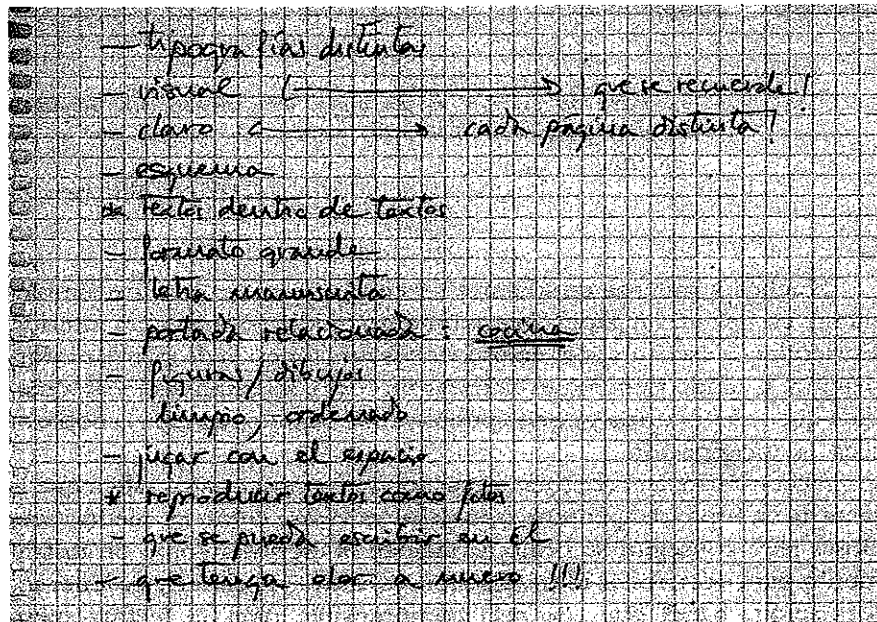 - tipografías distintas
- visual ⟷ ¡que se recuerde!
- claro ⟷ cada página distinta!
- esquema
* textos dentro de textos
- formato grande
- letra manuscrita
- portada relacionada: cocina
- figuras/dibujos
- limpio, ordenado
- jugar con el espacio
* reproducir textos como fotos
- que se pueda escribir en él
- que tenga olor a nuevo !!!